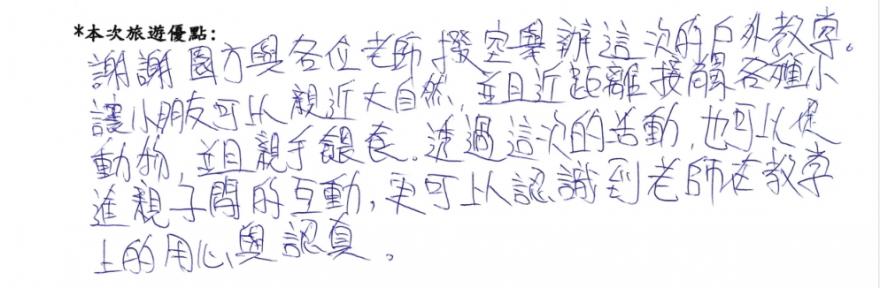 *本次旅遊優點:
謝謝園方與各位老師撥空舉辦這次的戶外教學。
讓小朋友可以親近大自然,並且近距離接觸各種小
動物,並且親手餵食。透過這次的活動,也可以促
進親子間的互動,更可以認識到老師在教學
上的用心與認真。